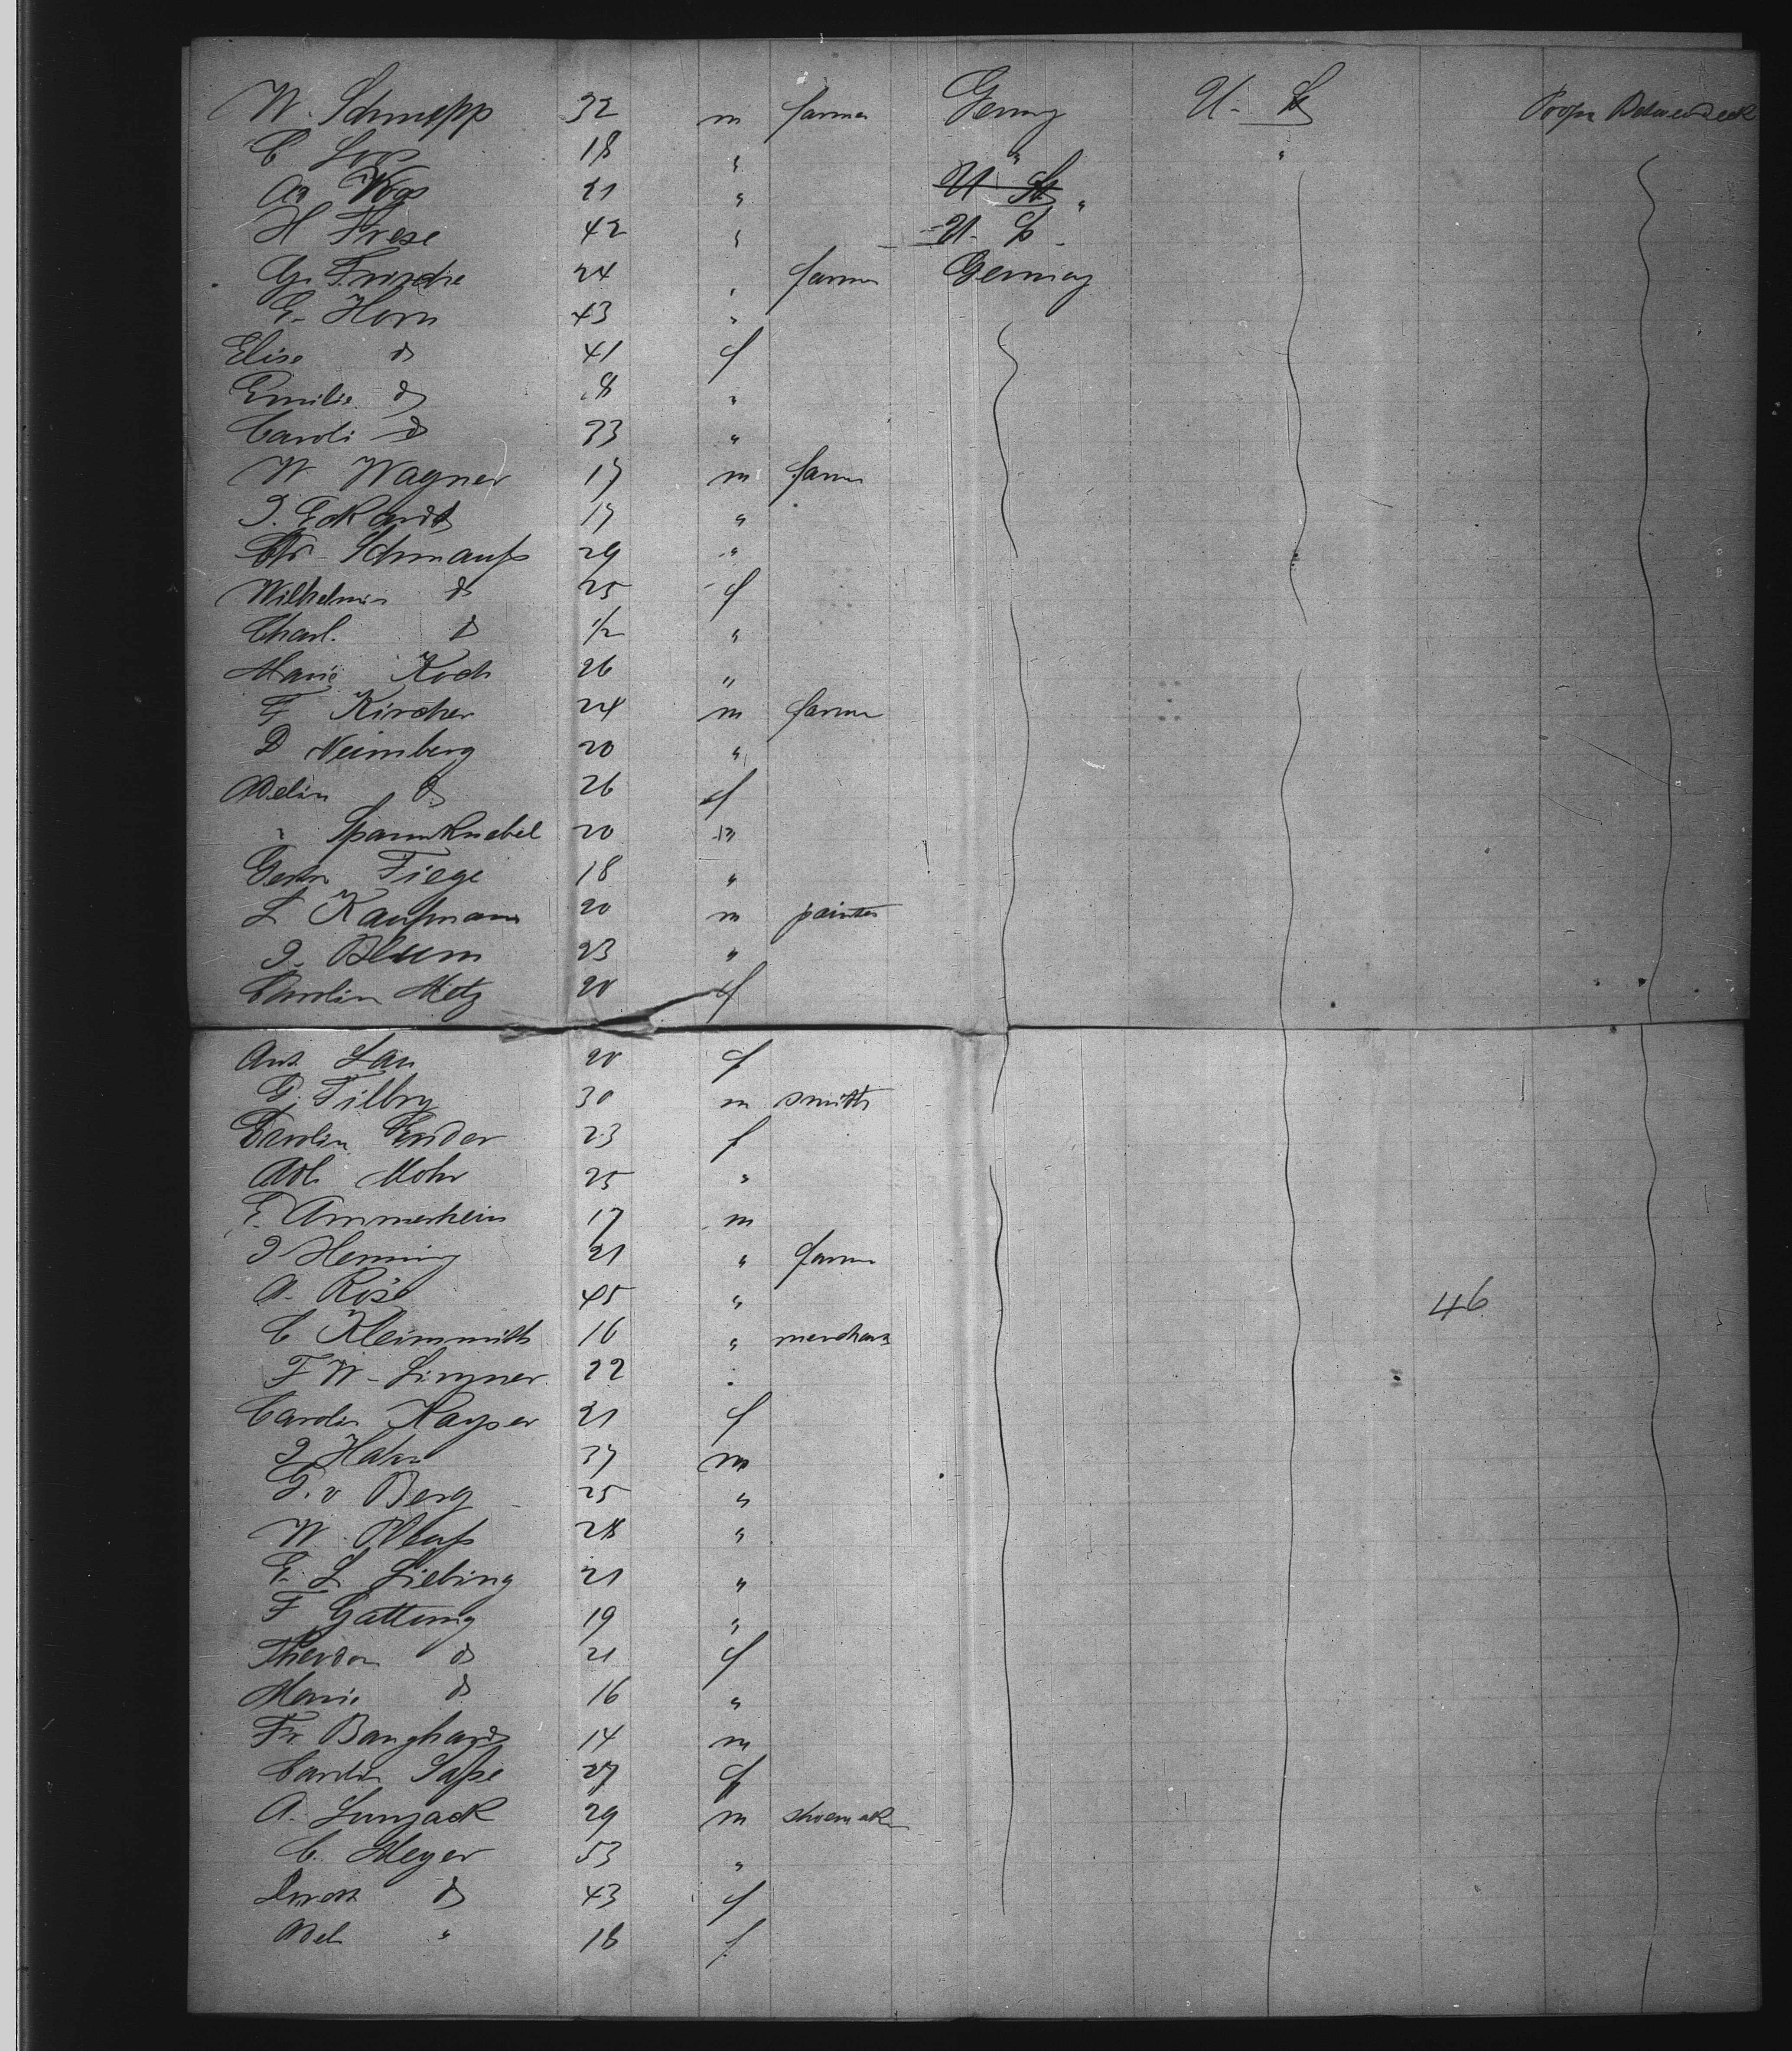 W. Schnepp 32 m farmer Germy U. St Proper Between Deck
C Loos 18 " " "
Aug Voss 21 " U St "
H Frese 42 " U. St
G. Fritzche 24 " farmer Germay
E. Horn 43 "
Elise do 41 f
Emilie do 8 "
Caroli do 23 "
W Wagner 17 m farm
J. Eckardt 17 "
Chr. Schmauss 29 "
Wilhelmin do 25 f
Charl. do 1/2 "
Marie Koch 26 "
F Kircher 24 m farm
D Neimberg 20 "
Adelin do 26 f
" Spannknebel 20 "
Fiege 18 "
L Kaufmann 20 m painter
J. Blum 23 "
Carolin Metz 20 f
Ant Lau 20 f
G. Filbry 30 m smith
Carolin 23 f
Adl. Mohr 25 "
E. Ammerhein 17 m
J Henning 21 " farm
A. Röse 45 " 46
C Kleinsmith 16 " merchant
F W. Lingner 22 "
Carolin Kayser 21 f
J Hahn 37 m
G. v Berg 25 "
W. 28 "
E. L Liebing 21 "
F Gattung 19 "
Theodor do 21 f
Marie do 16 "
Fr Banghard 14 m
Carolin Sasse 27 f
A. Lunjack 29 m shoemaker
C. Meyer 53 "
Doroth do 43 f
Adel " 18 f